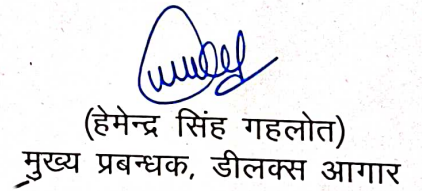 (हेमेन्द्र सिंह गहलोत)
मुख्य प्रबन्धक, डीलक्स आगार